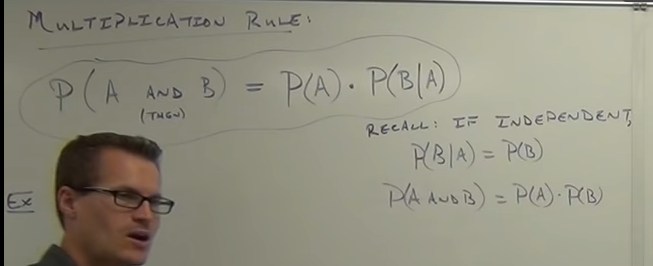 MULTIPLICATION RULE:
P(A AND B) = P(A) · P(B|A)
(THEN)
RECALL: IF INDEPENDENT,
P(B|A) = P(B)
P(A AND B) = P(A) · P(B)
Ex